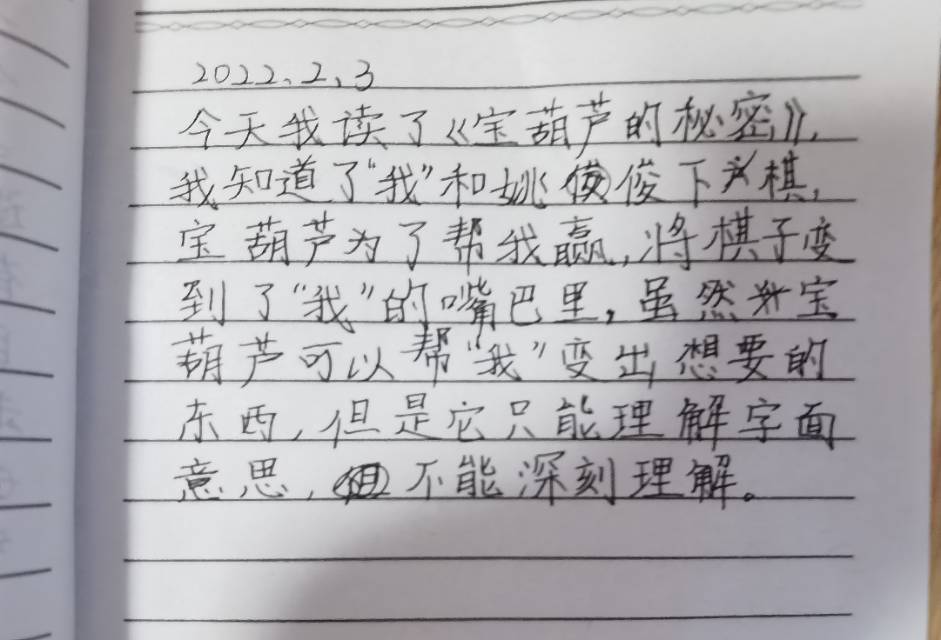 2022.2.3
今天我读了《宝葫芦的秘密》,
我知道了“我”和姚俊下棋,
宝葫芦为了帮我赢,将棋子变
到了“我”的嘴巴里,虽然宝
葫芦可以帮“我”变出想要的
东西,但是它只能理解字面
意思,不能深刻理解。